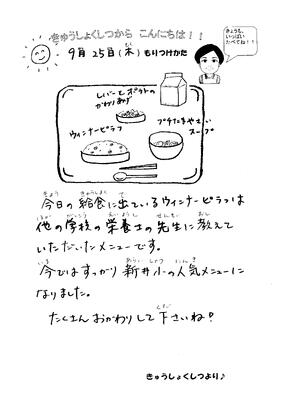 きゅうしょくしつから こんにちは!!
9月 25日(木) もりつけかた
きょうも、
いっぱい
たべてね!!
レバーとポテトの
かわりあげ
プチたまやさい
スープ
ウィンナーピラフ
今日の給食に出ているウィンナーピラフは
他の学校の栄養士の先生に教えて
いただいたメニューです。
今ではすっかり新井小の人気メニューに
なりました。
たくさんおかわりして下さいね?
きゅうしょくしつより♪